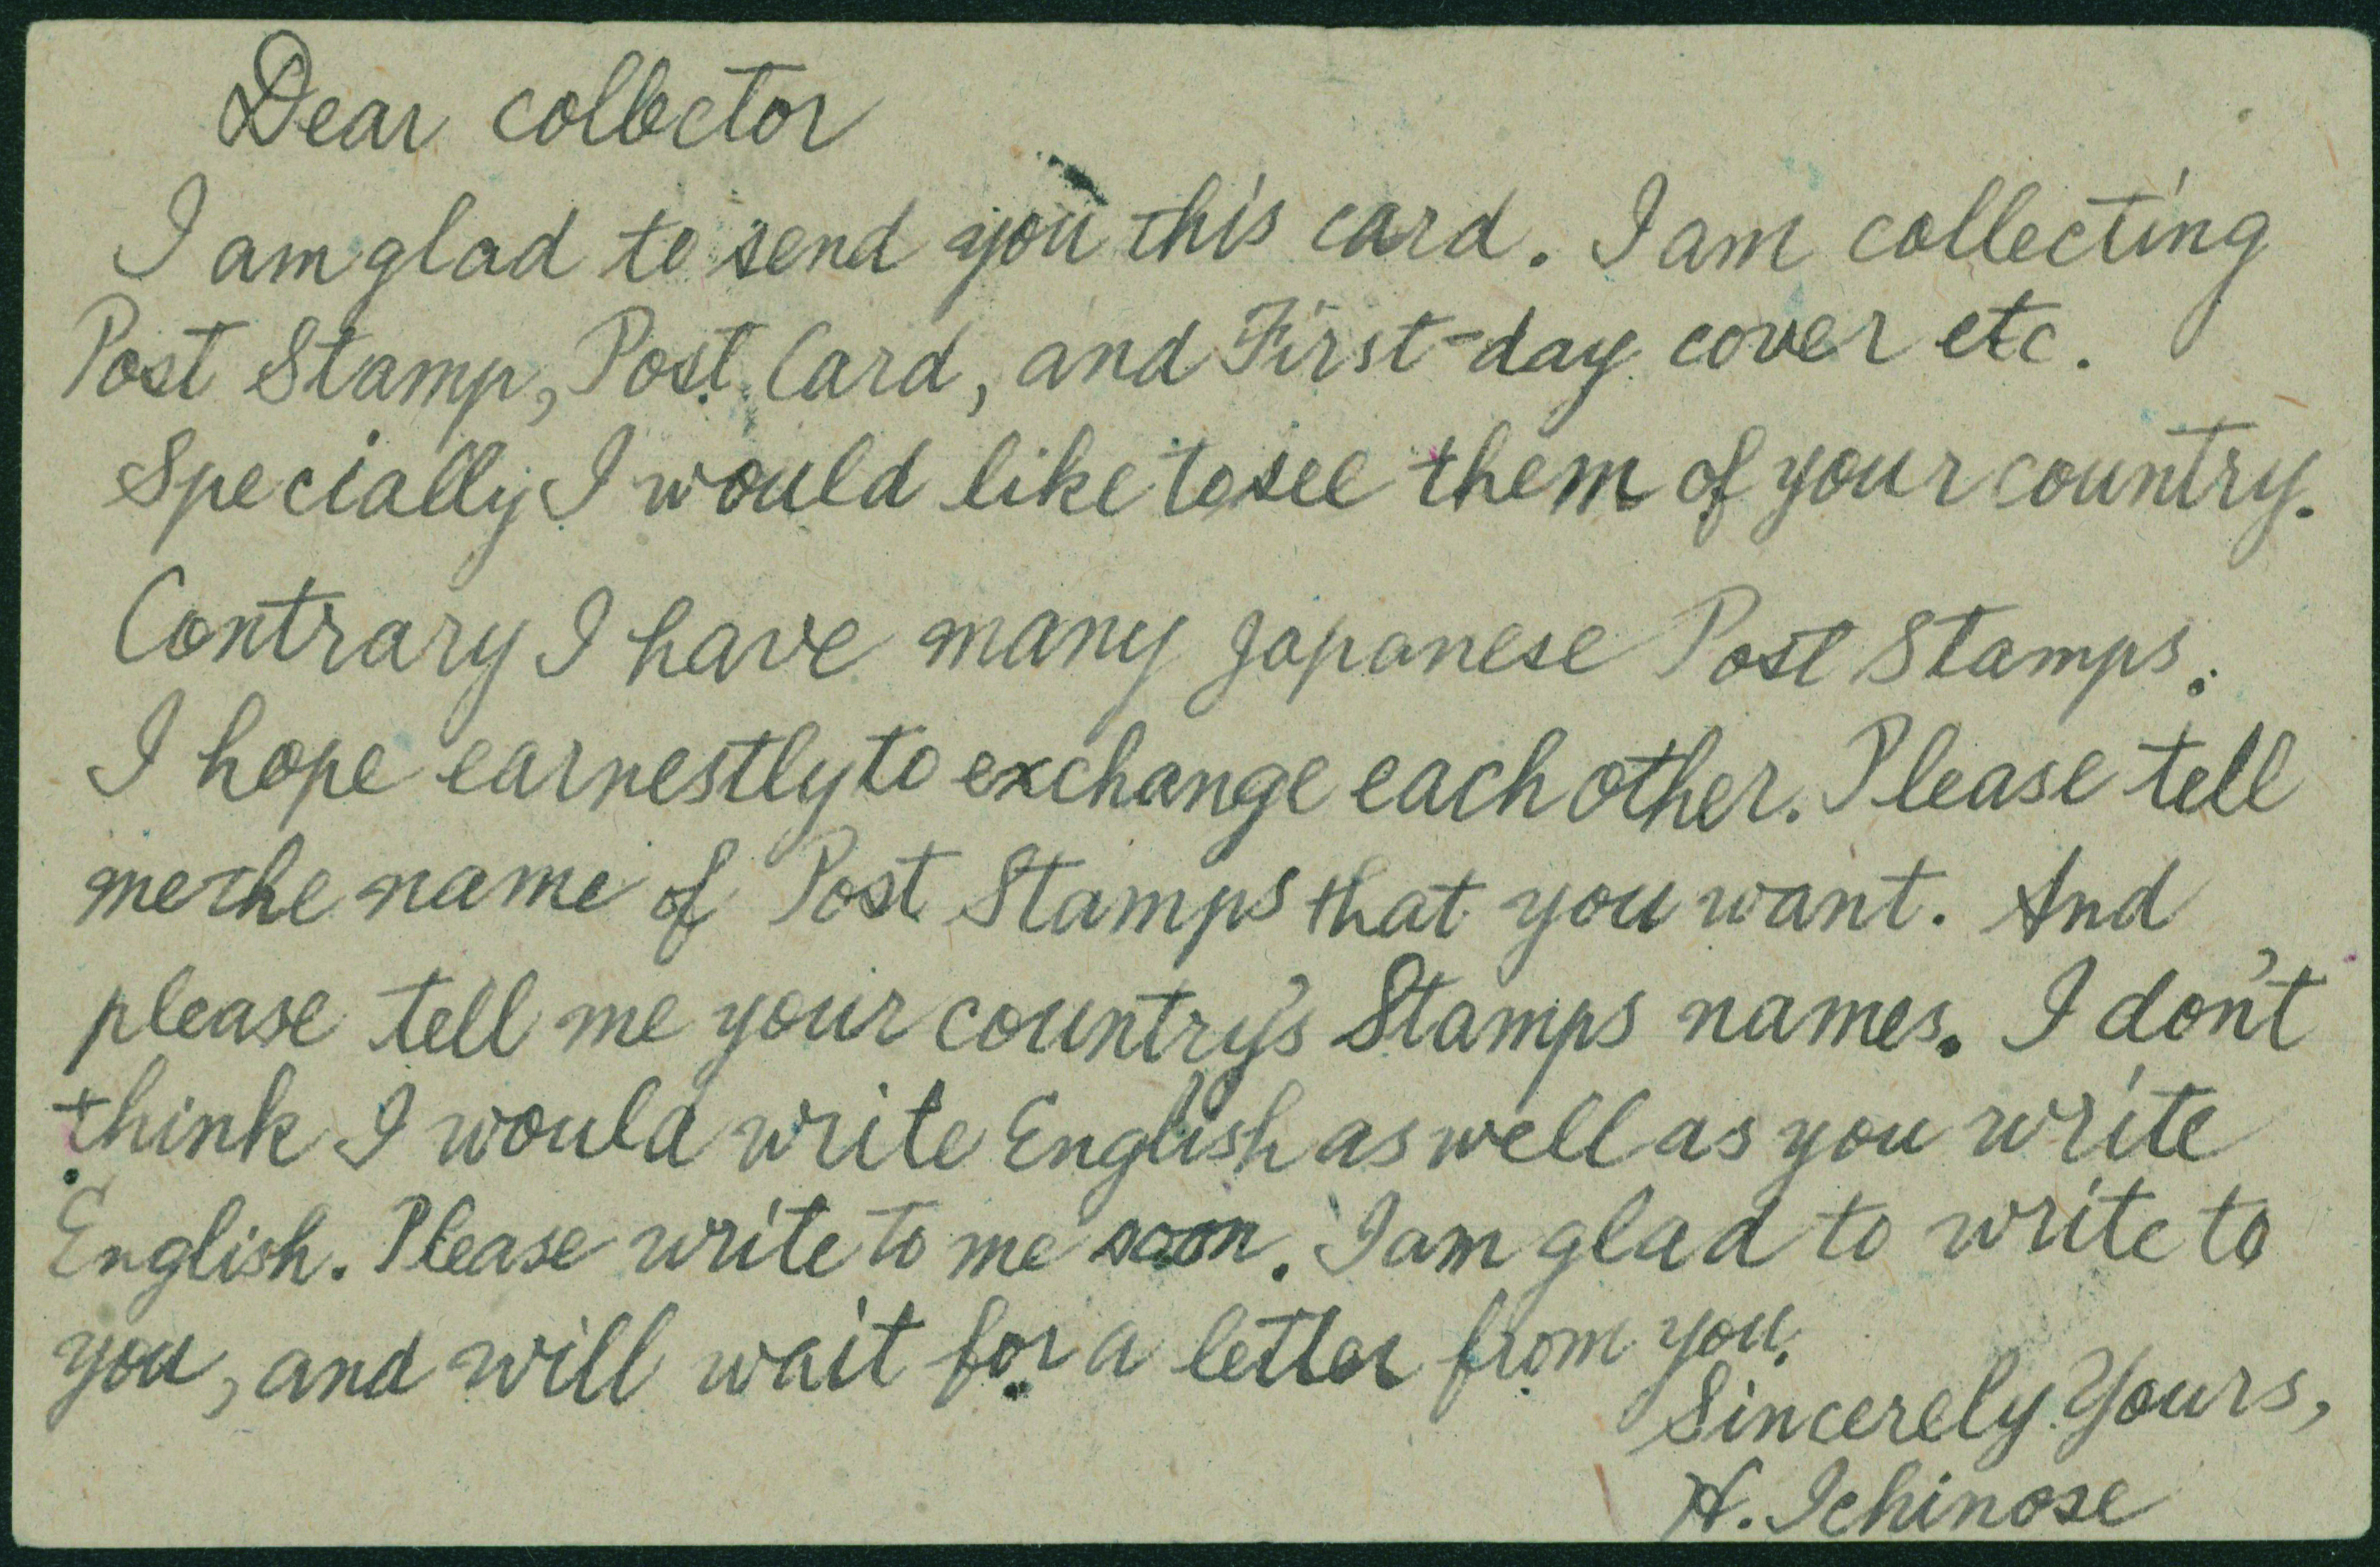 Dear collector
I am glad to send you this card. I am collecting
Post Stamp, Post Card, and First-day cover etc.
Specially I would like to see them of your country.
Contrary I have many Japanese Post Stamps.
I hope earnestly to exchange each other. Please tell
me the name of Post Stamps that you want. And
please tell me your country's Stamps names. I don't
think I would write English as well as you write
English. Please write to me soon. I am glad to write to
you, and will wait for a letter from you.
Sincerely Yours,
H. Ichinose